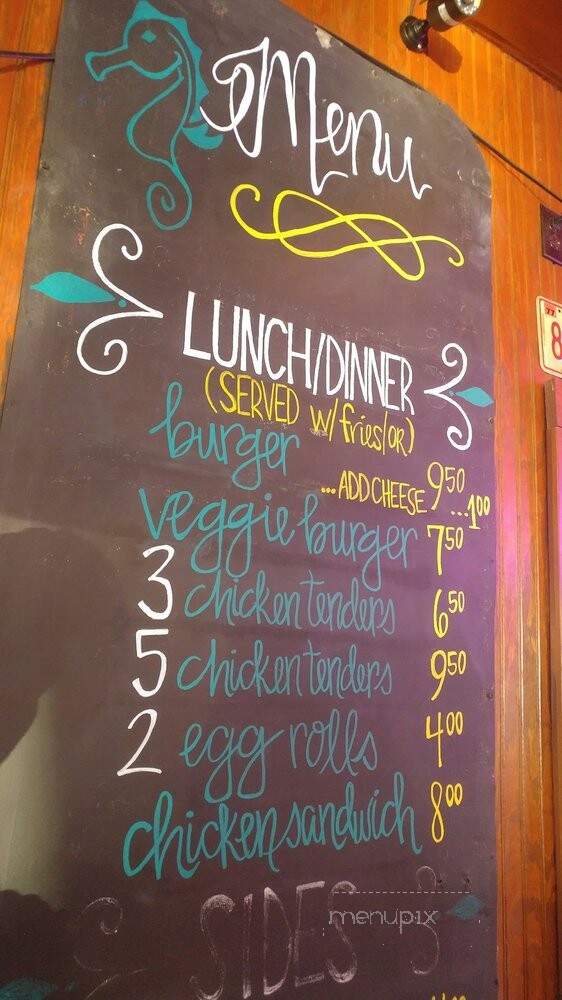 Menu
LUNCH/DINNER
(SERVED w/fries/OR)
burger 9.50
...ADD CHEESE ...1.00
veggie burger 7.50
3 chicken tenders 6.50
5 chicken tenders 9.50
2 egg rolls 4.00
chicken sandwich 8.00
SIDES
menupix
8